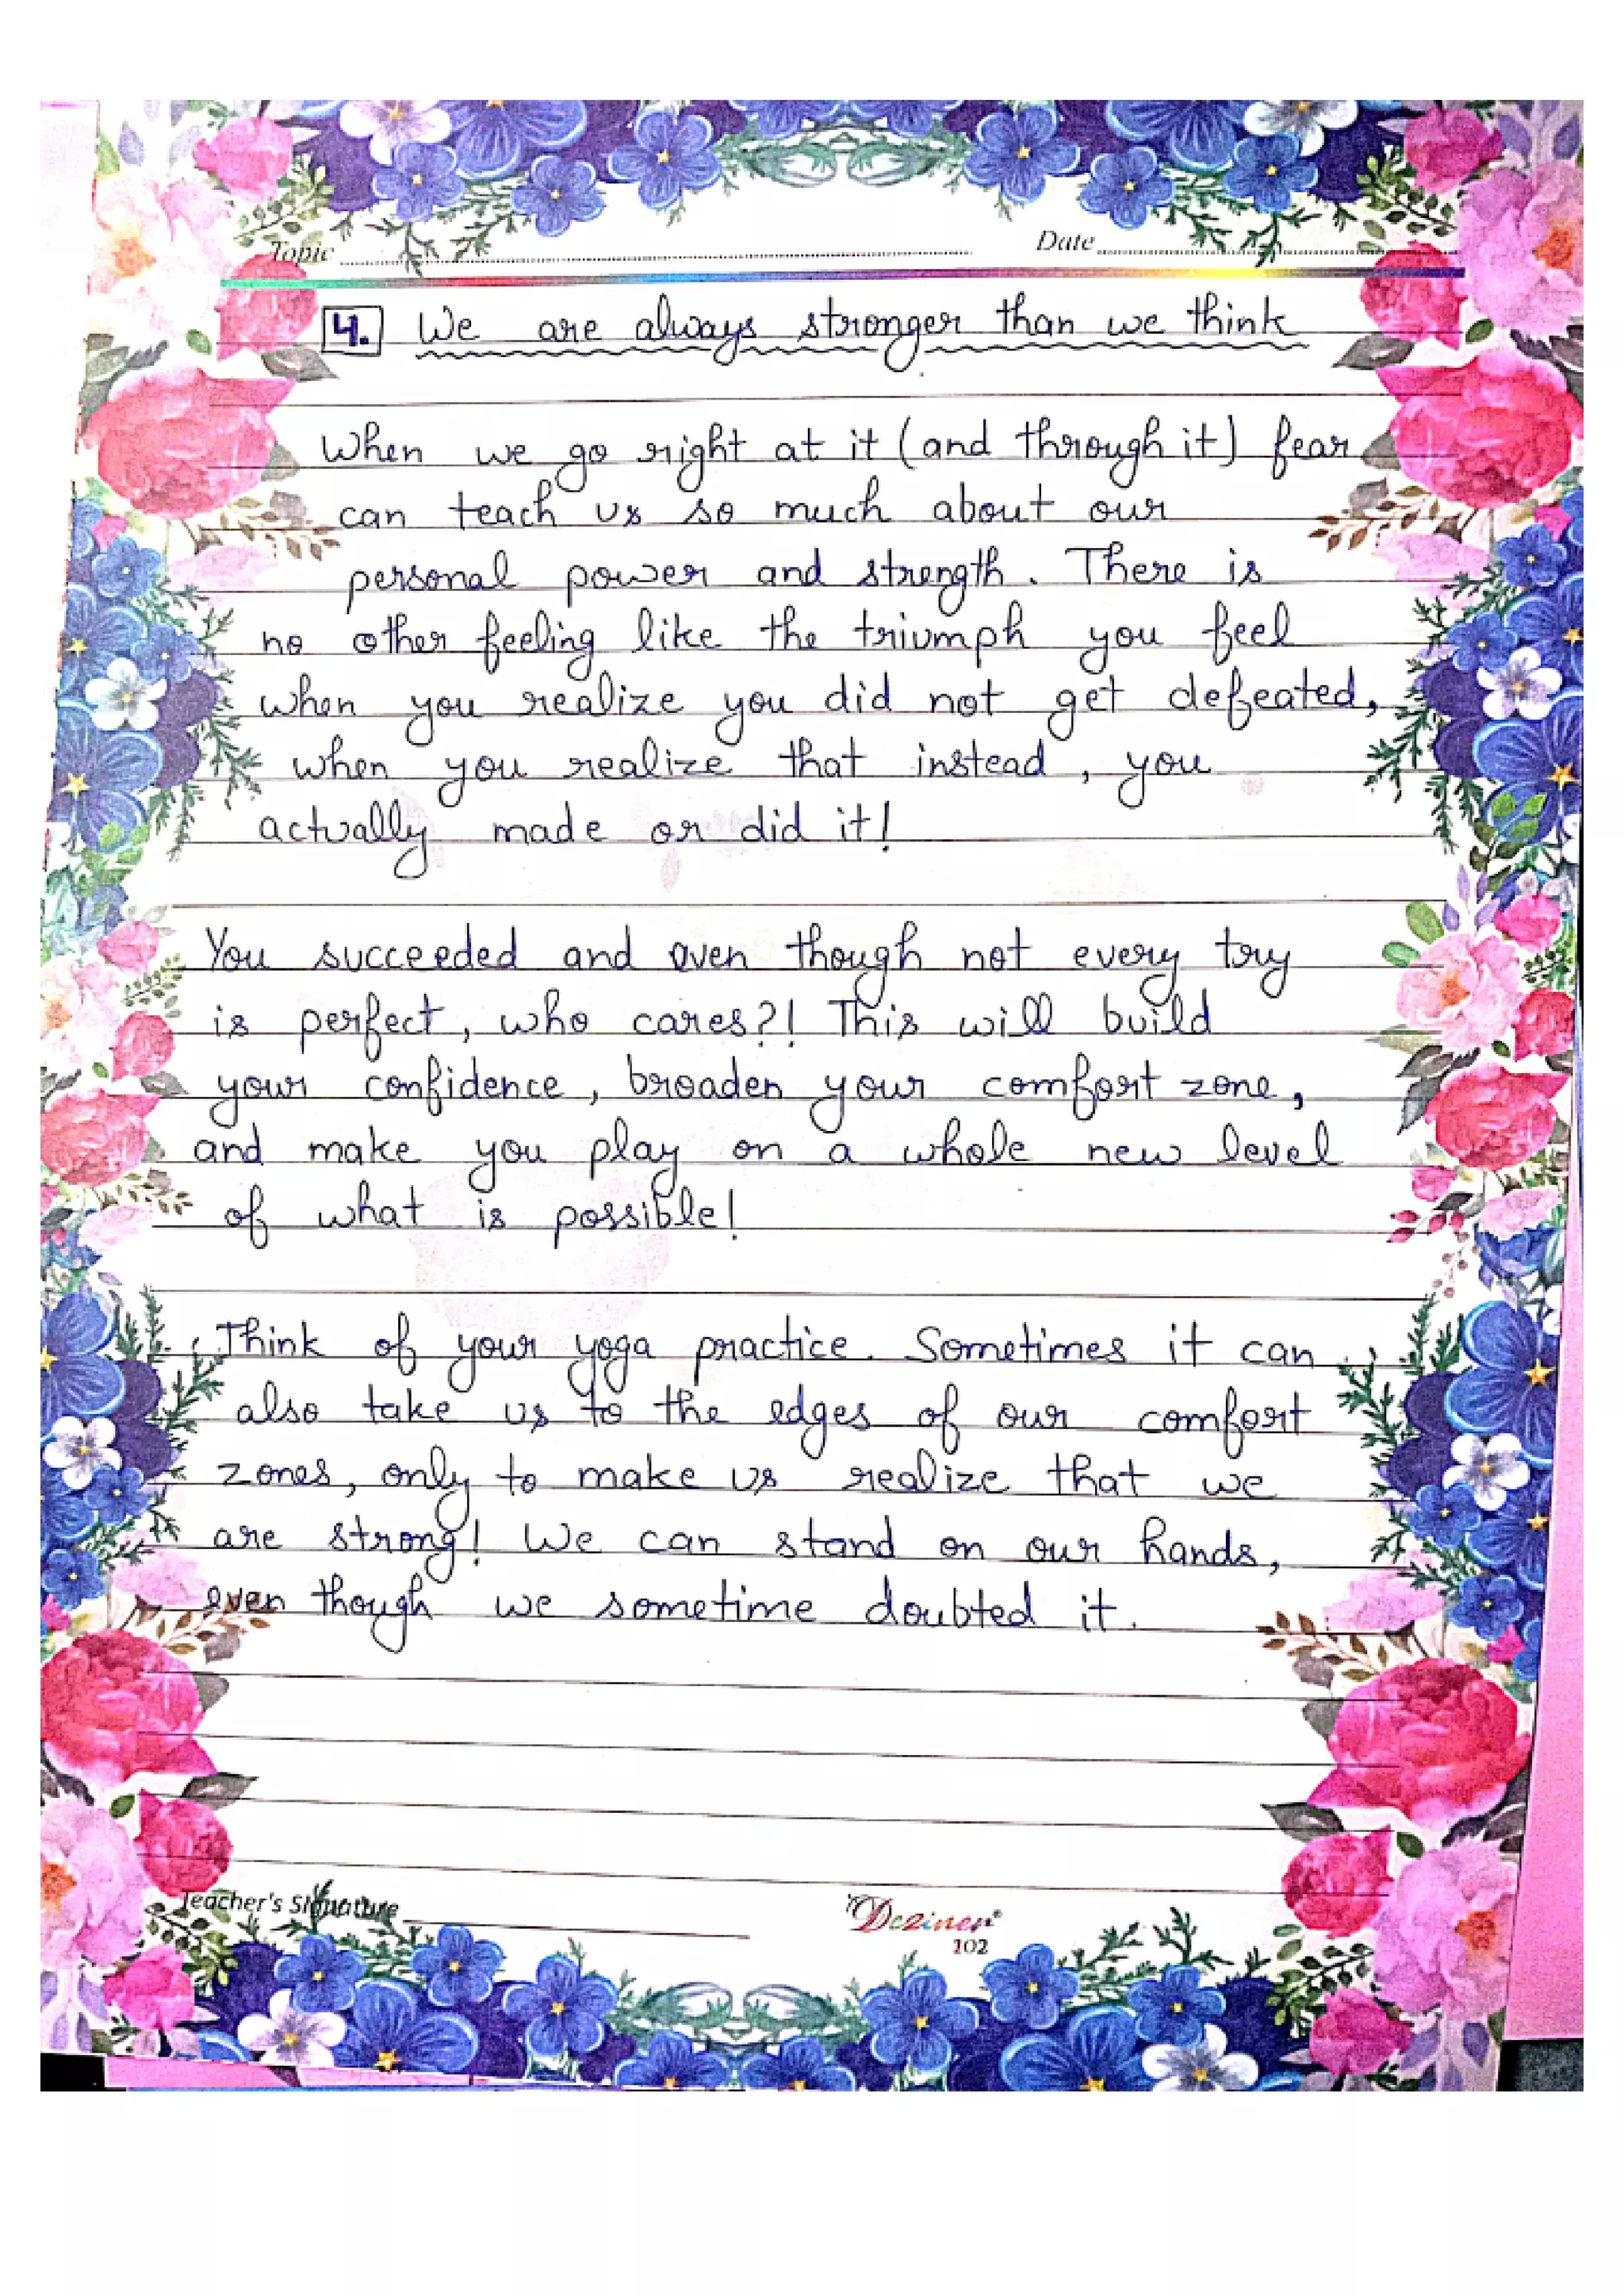 Topic
Date
4. We are always stronger than we think
When we go right at it (and through it) fear
can teach us so much about our
personal power and strength. There is
no other feeling like the triumph you feel
when you realize you did not get defeated,
when you realize that instead, you
actually made or did it!
You succeeded and even though not every try
is perfect, who cares?! This will build
your confidence, broaden your comfort zone,
and make you play on a whole new level
of what is possible!
Think of your yoga practice. Sometimes it can
also take us to the edges of our comfort
zones, only to make us realize that we
are strong! We can stand on our hands,
even though we sometime doubted it.
Teacher's Signature
Dezinen®
102